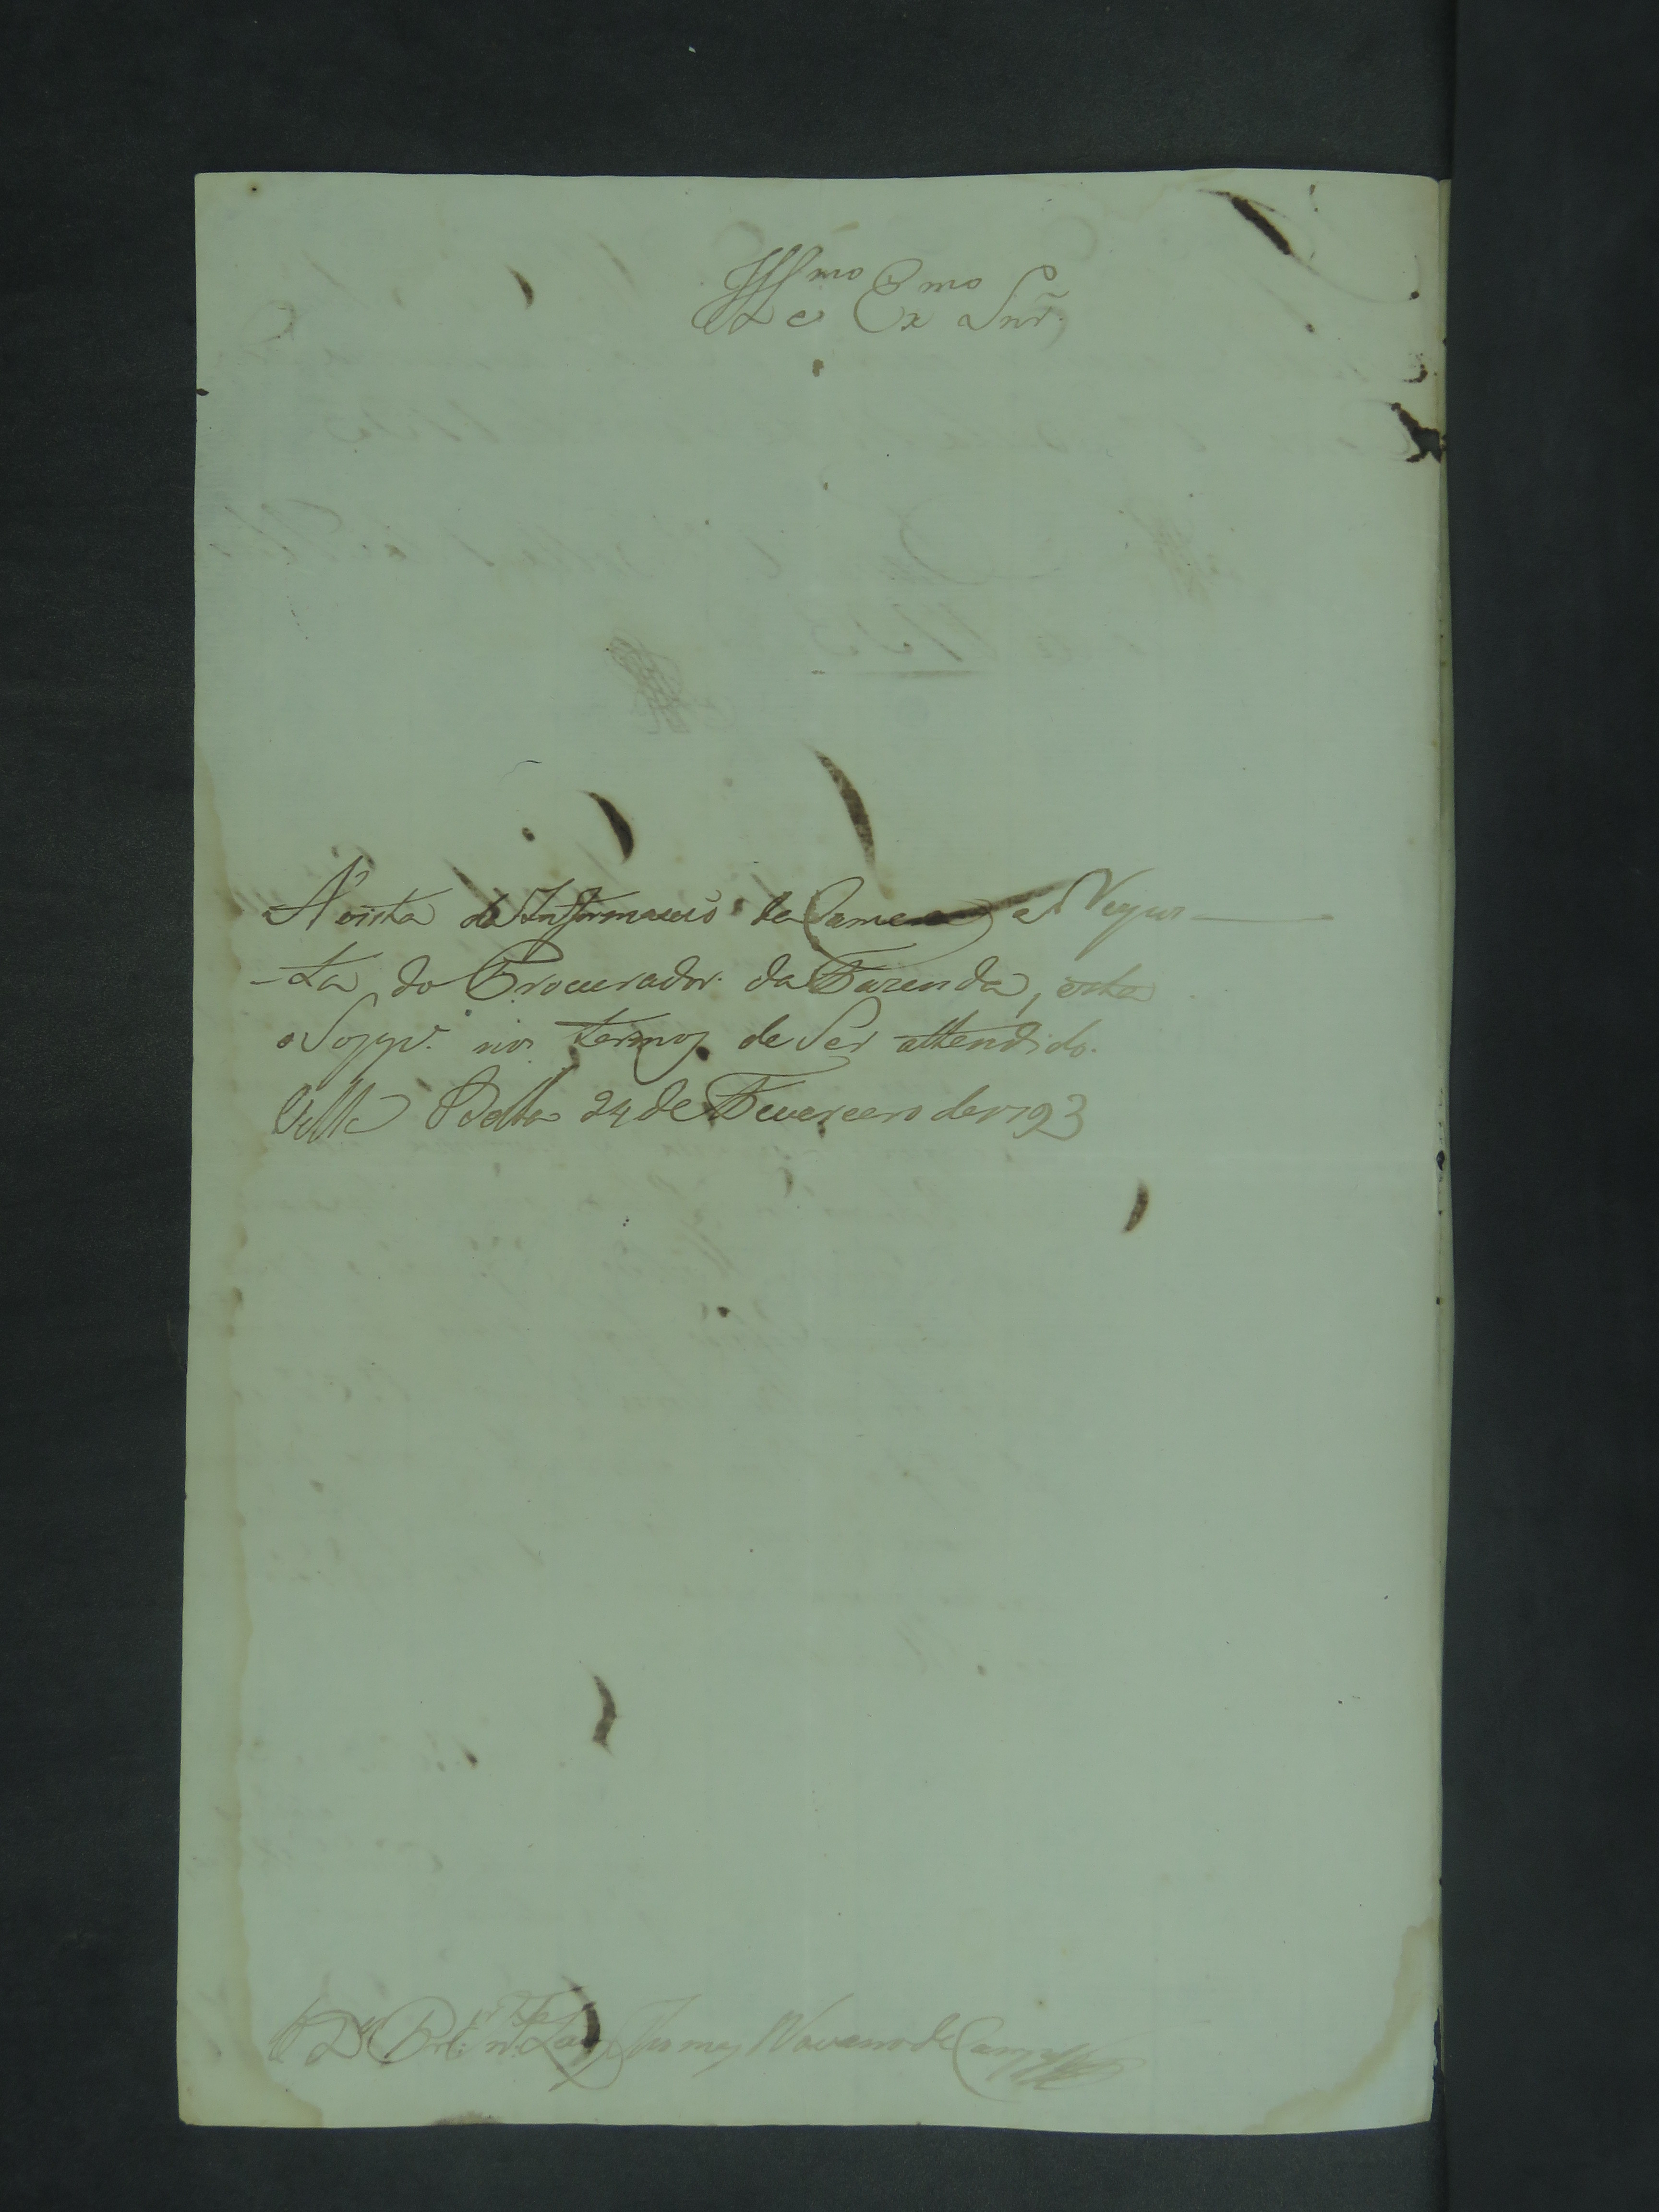 Illmo e Exmo Snr̃.
A' vista da Informacaõ da Camera, e Repos
-ta do Procurador da Fazenda, esta
o Sopp.e nos termos de Ser attendido.
Villa Bella 24 de Fevereiro de 1793
Navarro de Campos